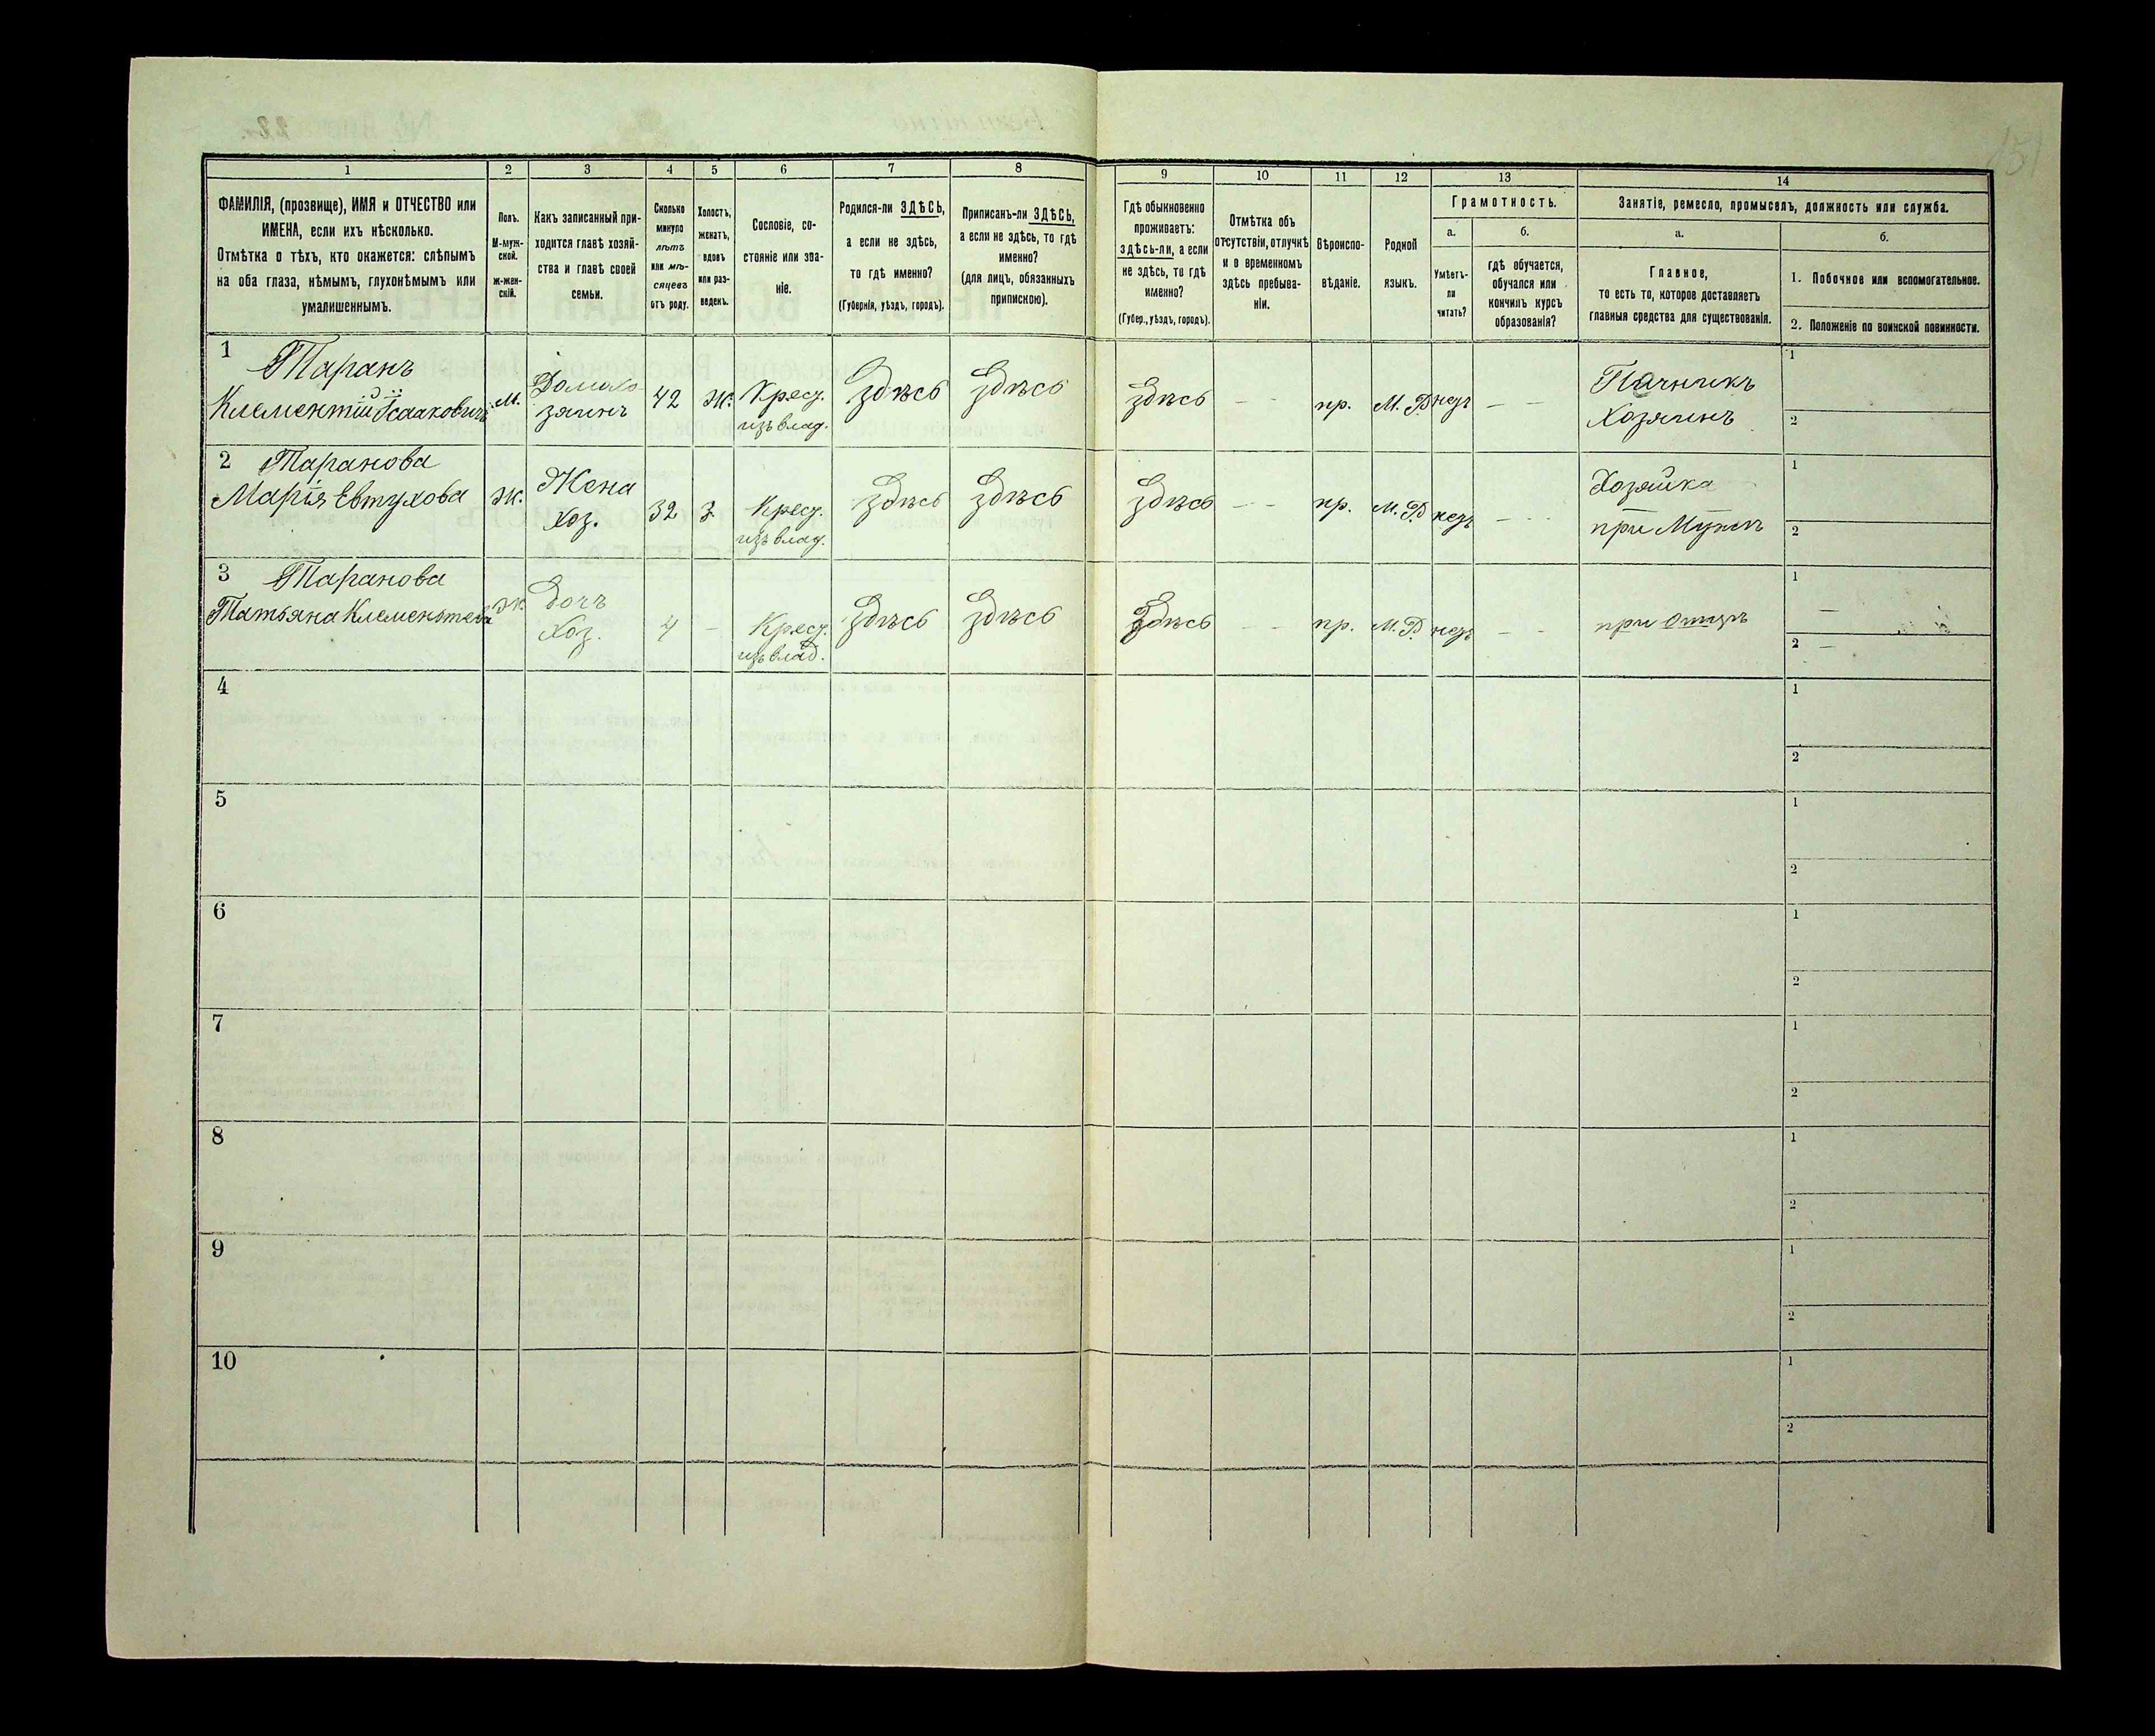 1 2 3 4 5 6 7 8 9 10 11 12 13 14
ФАМИЛІЯ, (прозвище), ИМЯ и ОТЧЕСТВО или
ИМЕНА, если ихъ нѣсколько.
Отмѣтка о тѣхъ, кто окажется: слѣпымъ
на оба глаза, нѣмымъ, глухонѣмымъ или
умалишеннымъ.
Полъ.
М-муж-
ской.
Ж-жен-
скій.
Какъ записанный при-
ходится главѣ хозяй-
ства и главѣ своей
семьи.
Сколько
минуло
лѣтъ
или мѣ-
сяцевъ
отъ роду.
Холостъ,
женатъ,
вдовъ
или раз-
веденъ.
Сословіе, со-
стояніе или зва-
ніе.
Родился-ли ЗДѢСЬ,
а если не здѣсь,
то гдѣ именно?
(Губернія, уѣздъ, городъ).
Приписанъ-ли ЗДѢСЬ,
а если не здѣсь, то гдѣ
именно?
(для лицъ, обязанныхъ
припискою).
Гдѣ обыкновенно
проживаетъ:
здѣсь-ли, а если
не здѣсь, то гдѣ
именно?
(Губер., уѣздъ, городъ).
Отмѣтка объ
отсутствіи, отлучкѣ
и о временномъ
здѣсь пребыва-
ніи.
Вѣроиспо-
вѣданіе.
Родной
языкъ.
Грамотность.
а.
Умѣетъ-
ли
читать?
б.
гдѣ обучается,
обучался или
кончилъ курсъ
образованія?
Занятіе, ремесло, промыселъ, должность или служба.
а.
Главное,
то есть то, которое доставляетъ
главныя средства для существованія.
б.
1. Побочное или вспомогательное.
2. Положеніе по воинской повинности.
1 Таранъ
Клементій Ісааковичъ
м.
Домохо
зяинъ
42
ж.
Крест.
изъ влад.
Здѣсь
Здѣсь
Здѣсь
— —
пр.
М. Р.
нетъ
— —
Печникъ
Хозяинъ
1
2
2 Таранова
Марія Евтухова
ж.
Жена
Хоз.
32
З.
Крест.
изъ влад.
Здѣсь
Здѣсь
Здѣсь
— —
пр.
М. Р.
нетъ
— —
Хозяйка
при Мужѣ
1
2
3 Таранова
Татьяна Клементьева
ж.
Дочь
Хоз.
4
—
Крест.
изъ влад.
Здѣсь
Здѣсь
Здѣсь
— —
пр.
М. Р.
нетъ
— —
при Отцѣ
1 —
2 —
4
1
2
5
1
2
6
1
2
7
1
2
8
1
2
9
1
2
10
1
2